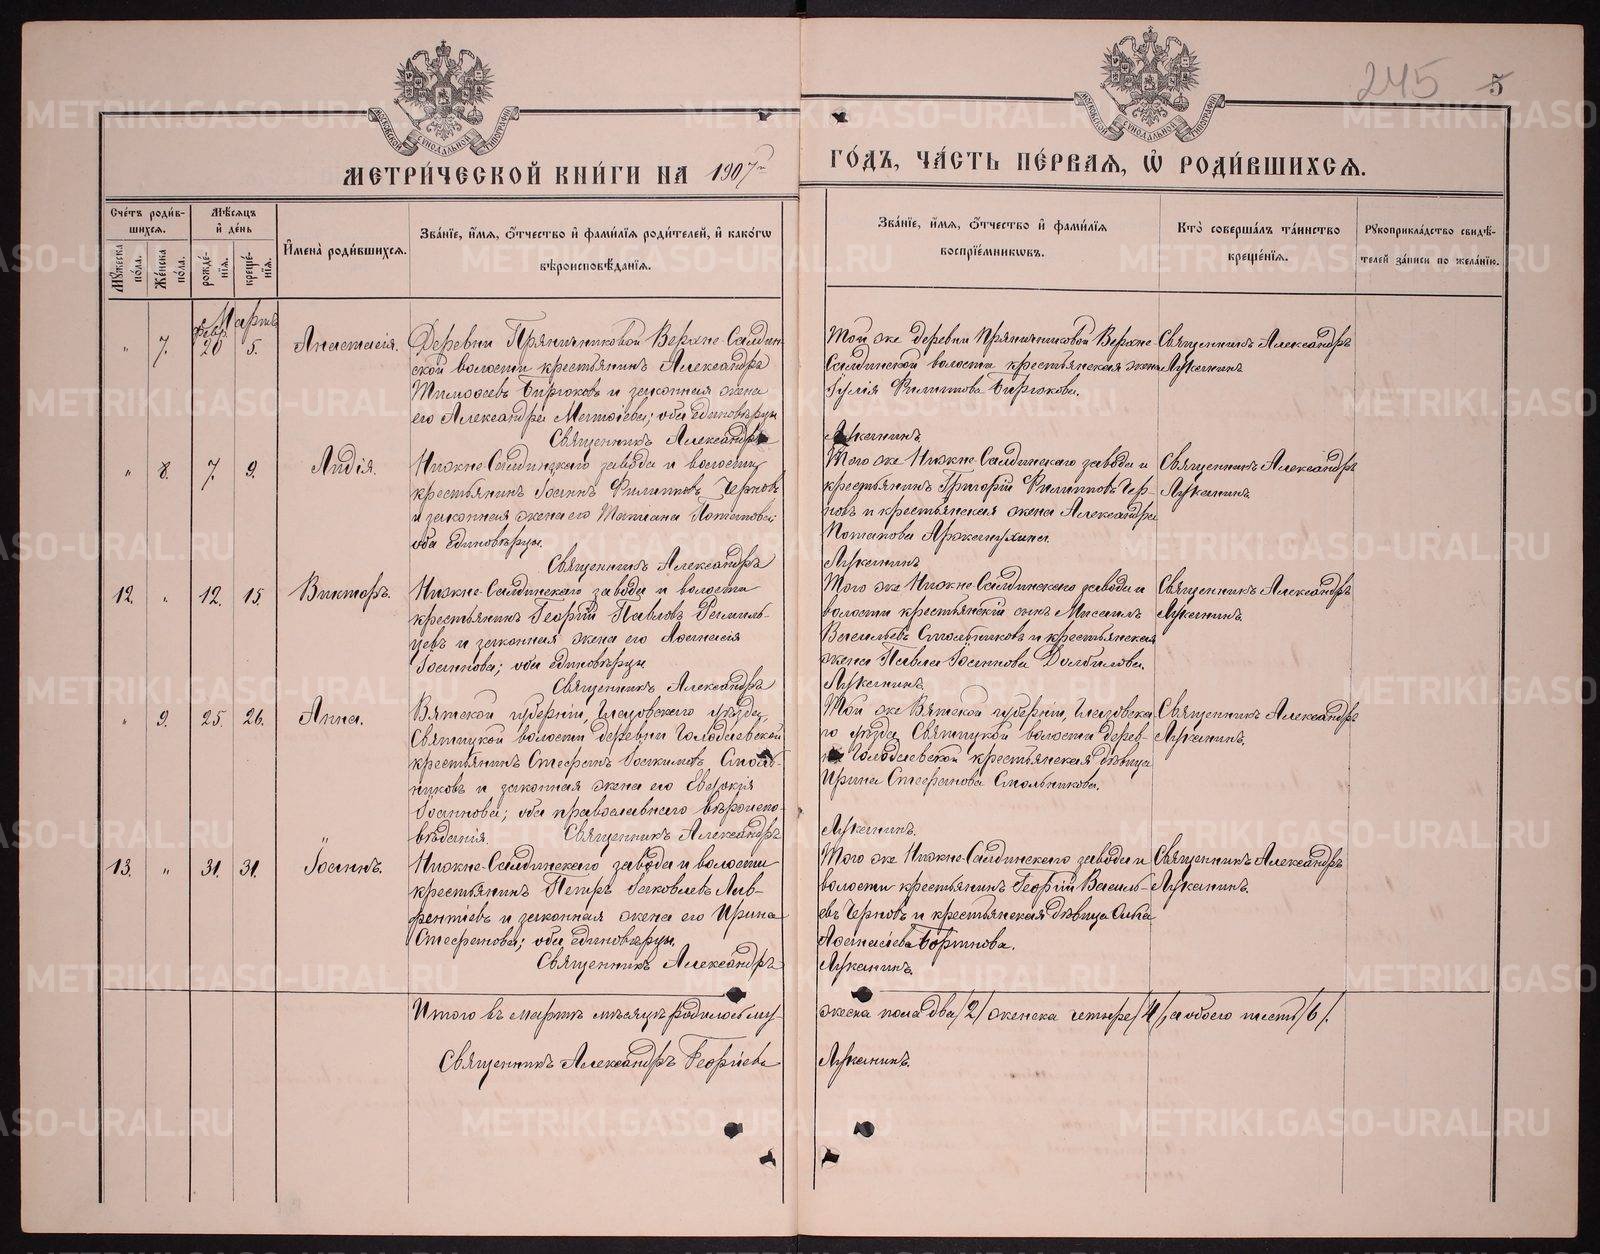 245 5
МОСКОВСКОЙ СѴНОДАЛЬНОЙ ТИПОГРАФІИ
МОСКОВСКОЙ СѴНОДАЛЬНОЙ ТИПОГРАФІИ
МЕТРИ́ЧЕСКОЙ КНИ́ГИ НА 1907й
ГО́ДЪ, ЧА́СТЬ ПЕ́РВАЯ, Ѡ҆ РОДИ́ВШИХСЯ.
Сче́тъ роди́в-
шихся.
Мѣ́сяцъ
и҆ де́нь
Мꙋ́жеска по́ла.
Же́нска по́ла.
рожде́-нїя.
креще́-нїя.
И҆мена̀ роди́вшихся.
Зва́нїе, и҆́мя, ѻ҆́тчество и҆ фамі́лїя роди́телей, и҆ како́гѡ
вѣроисповѣ́данїя.
Зва́нїе, и҆́мя, ѻ҆́тчество и҆ фамі́лїя
воспрїе́мниковъ.
Кто̀ соверша́лъ та́инство
креще́нїя.
Рꙋкоприкла́дство свидѣ́-
телей за́писи по жела́нїю.
Мартъ
февр.
" 7. 20 5. Анастасія.
Деревни Пряничниковой Верхне-Салдин
ской волости крестьянинъ Александръ
Тимоѳеевъ Бирюковъ и законная жена
его Александра Матѳіева; оба единовѣрцы
Священникъ Александръ
Той же деревни Пряничниковой Верхне
Салдинской волости крестьянская жена
Іулія Филиппова Бирюкова.
Луканинъ
Священникъ Александръ
Луканинъ
" 8. 7. 9. Лидія.
Нижне-Салдинскаго завода и волости
крестьянинъ Іоаннъ Филипповъ Черновъ
и законная жена его Татіана Потапова;
оба единовѣрцы.
Священникъ Александръ
Того же Нижне-Салдинскаго завода и
крестьянинъ Григорій Филипповъ Чер-
новъ и крестьянская жена Александра
Потапова
Луканинъ
Священникъ Александръ
Луканинъ.
12. " 12. 15. Викторъ.
Нижне-Салдинскаго завода и волости
крестьянинъ Георгій Павловъ
и законная жена его Аѳанасія
Іоаннова; оба единовѣрцы
Священникъ Александръ
Того же Нижне-Салдинскаго завода и
волости крестьянскій сынъ Мисаилъ
Васильевъ и крестьянская
жена Павла Іоаннова Долбилова.
Луканинъ.
Священникъ Александръ
Луканинъ.
" 9. 25. 26. Анна.
Вятской губерніи, Глазовскаго уѣзда,
Святицкой волости деревни Голодаевской
крестьянинъ Стефанъ Іоакимовъ Смоль-
никовъ и законная жена его Евдокія
Іоаннова; оба православнаго вѣроиспо-
вѣданія. Священникъ Александръ
Той же Вятской губерніи, Глазовска
го уѣзда Святицкой волости дерев-
ни Голодаевской крестьянская дѣвица
Ирина Стефанова Смольникова.
Луканинъ.
Священникъ Александръ
Луканинъ.
13. " 31. 31. Іоаннъ.
Нижне-Салдинскаго завода и волости
крестьянинъ Петръ Іаковлевъ Лав-
рентіевъ и законная жена его Ирина
Стефанова; оба единовѣрцы.
Священникъ Александръ
Того же Нижне-Салдинскаго завода и
волости крестьянинъ Георгій Василь-
евъ Черновъ и крестьянская дѣвица
Аѳанасіева
Луканинъ.
Священникъ Александръ
Луканинъ.
Итого въ мартѣ мѣсяцѣ родилось му-
жеска пола два /2/ женска четыре /4/, а обоего шесть /6/.
Священникъ Александръ Георгіевъ
Луканинъ.
METRIKI.GASO-URAL.RU